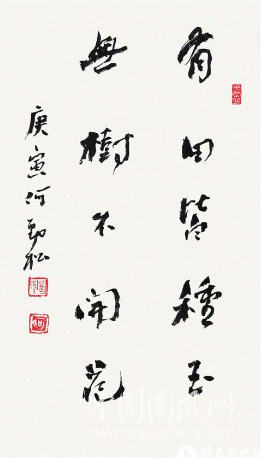 有田皆種玉
無樹不開花
庚寅何勁松
中国国风网
www.zggaofeng.com